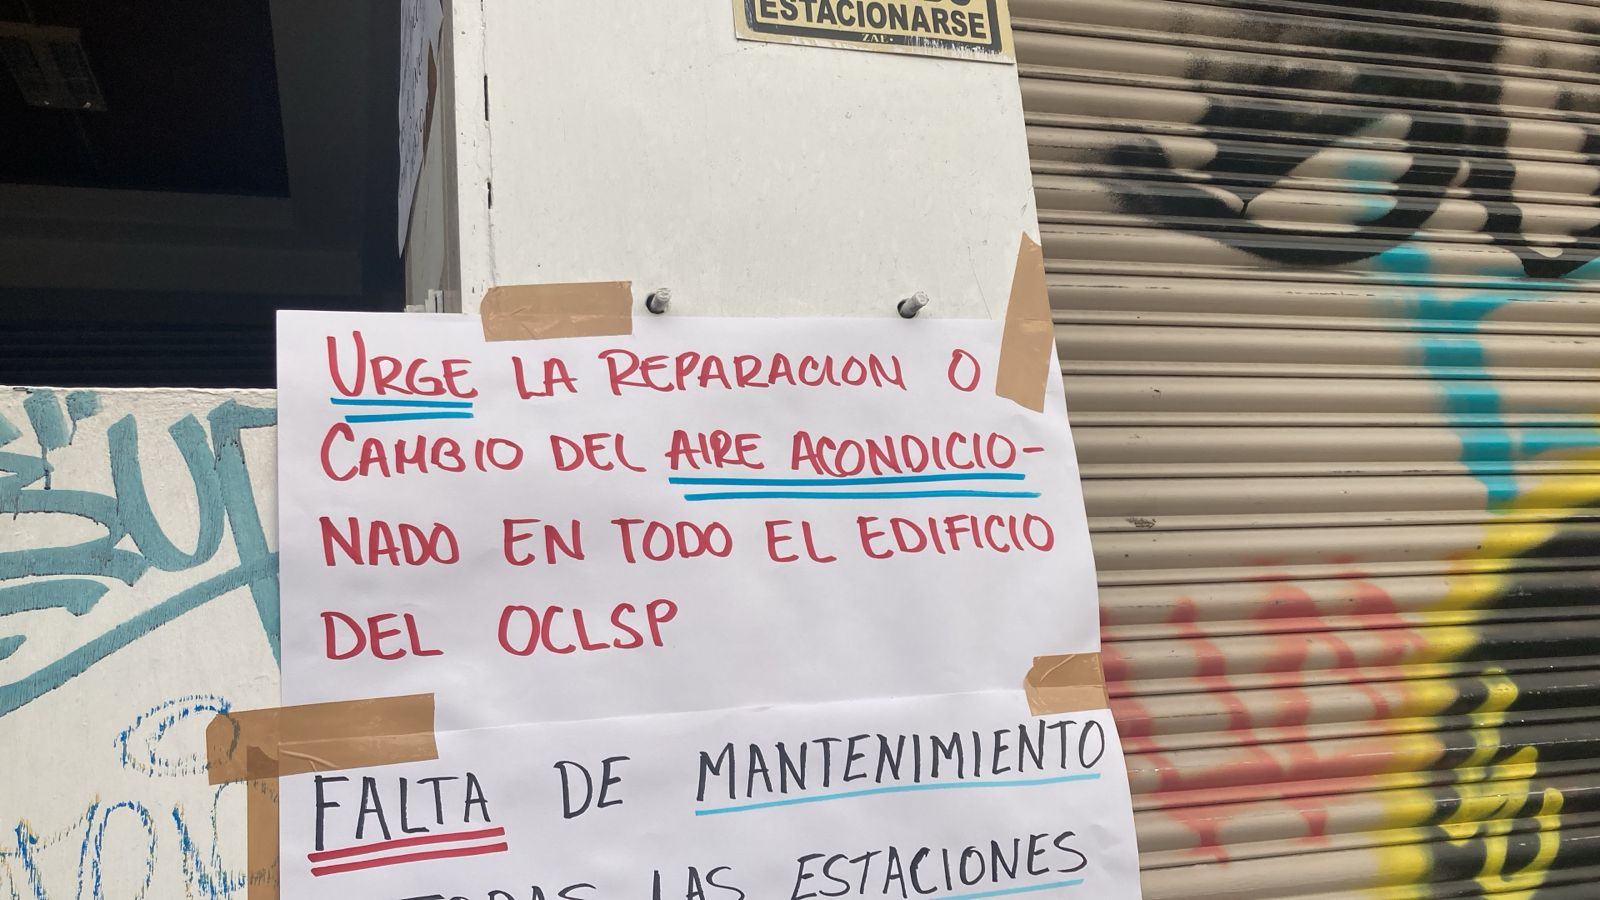 ESTACIONARSE
URGE LA REPARACION O
CAMBIO DEL AIRE ACONDICIO-
NADO EN TODO EL EDIFICIO
DEL OCLSP
FALTA DE MANTENIMIENTO
TODAS LAS ESTACIONES